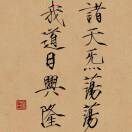 諸天炁蕩蕩
我道日興隆